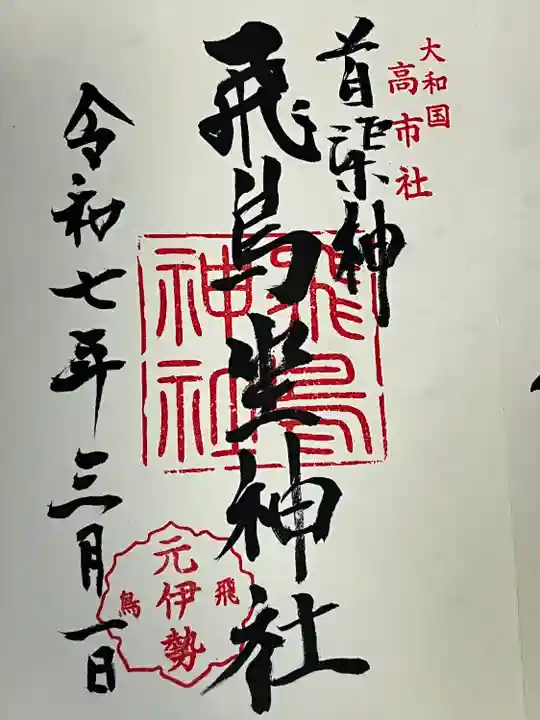 大和国
高市社
首渠神
飛鳥坐神社
飛鳥
神社
元伊勢
飛鳥
令和七年三月一日